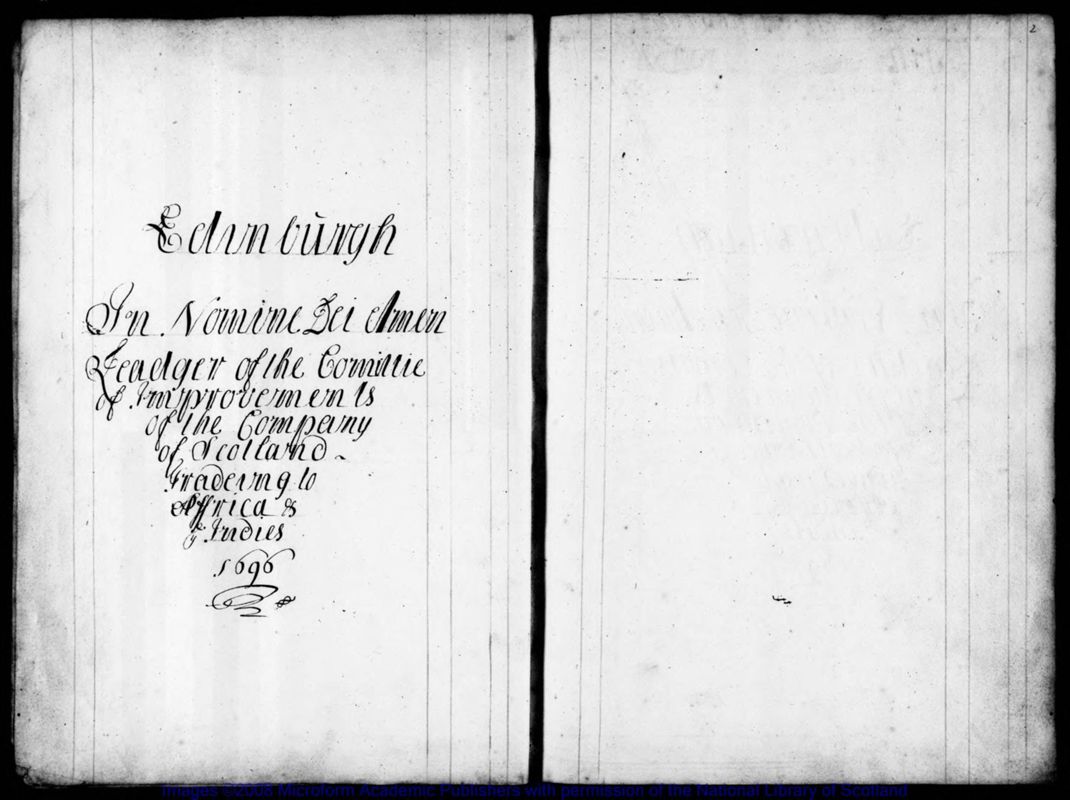 Edinbùrgh
In Nomine Dei Amen
Leadger of the Comittie
of Improvements
of the Company
of Scotland ~
Tradeing to
Affrica &
yͤ Indies
1696
2
Images ©2008 Microform Academic Publishers with permission of the National Library of Scotland